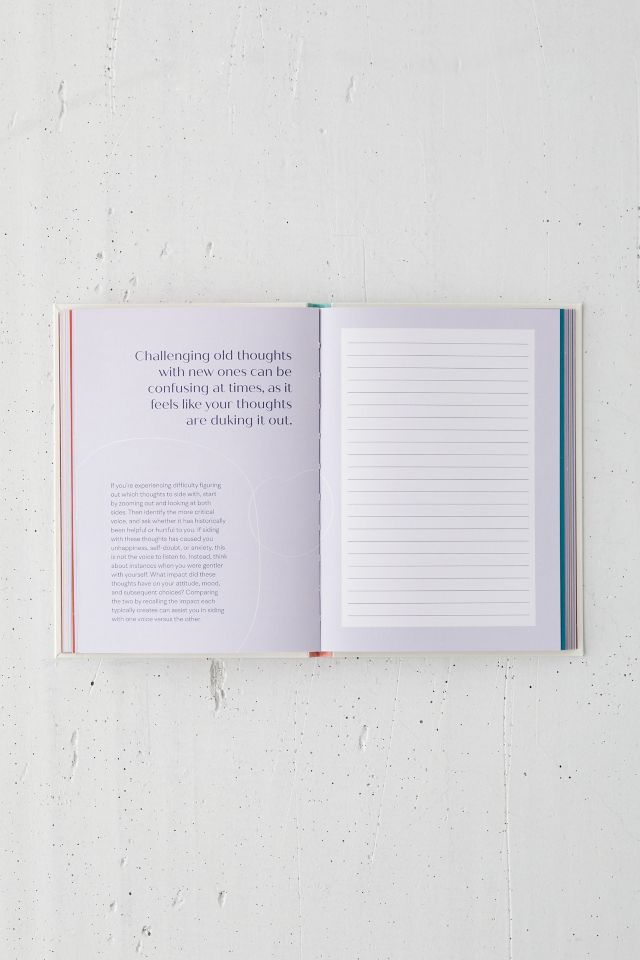 Challenging old thoughts
with new ones can be
confusing at times, as it
feels like your thoughts
are duking it out.
If you're experiencing difficulty figuring
out which thoughts to side with, start
by zooming out and looking at both
sides. Then identify the more critical
voice, and ask whether it has historically
been helpful or hurtful to you. If siding
with these thoughts has caused you
unhappiness, self-doubt, or anxiety, this
is not the voice to listen to. Instead, think
about instances when you were gentler
with yourself. What impact did these
thoughts have on your attitude, mood,
and subsequent choices? Comparing
the two by recalling the impact each
typically creates can assist you in siding
with one voice versus the other.